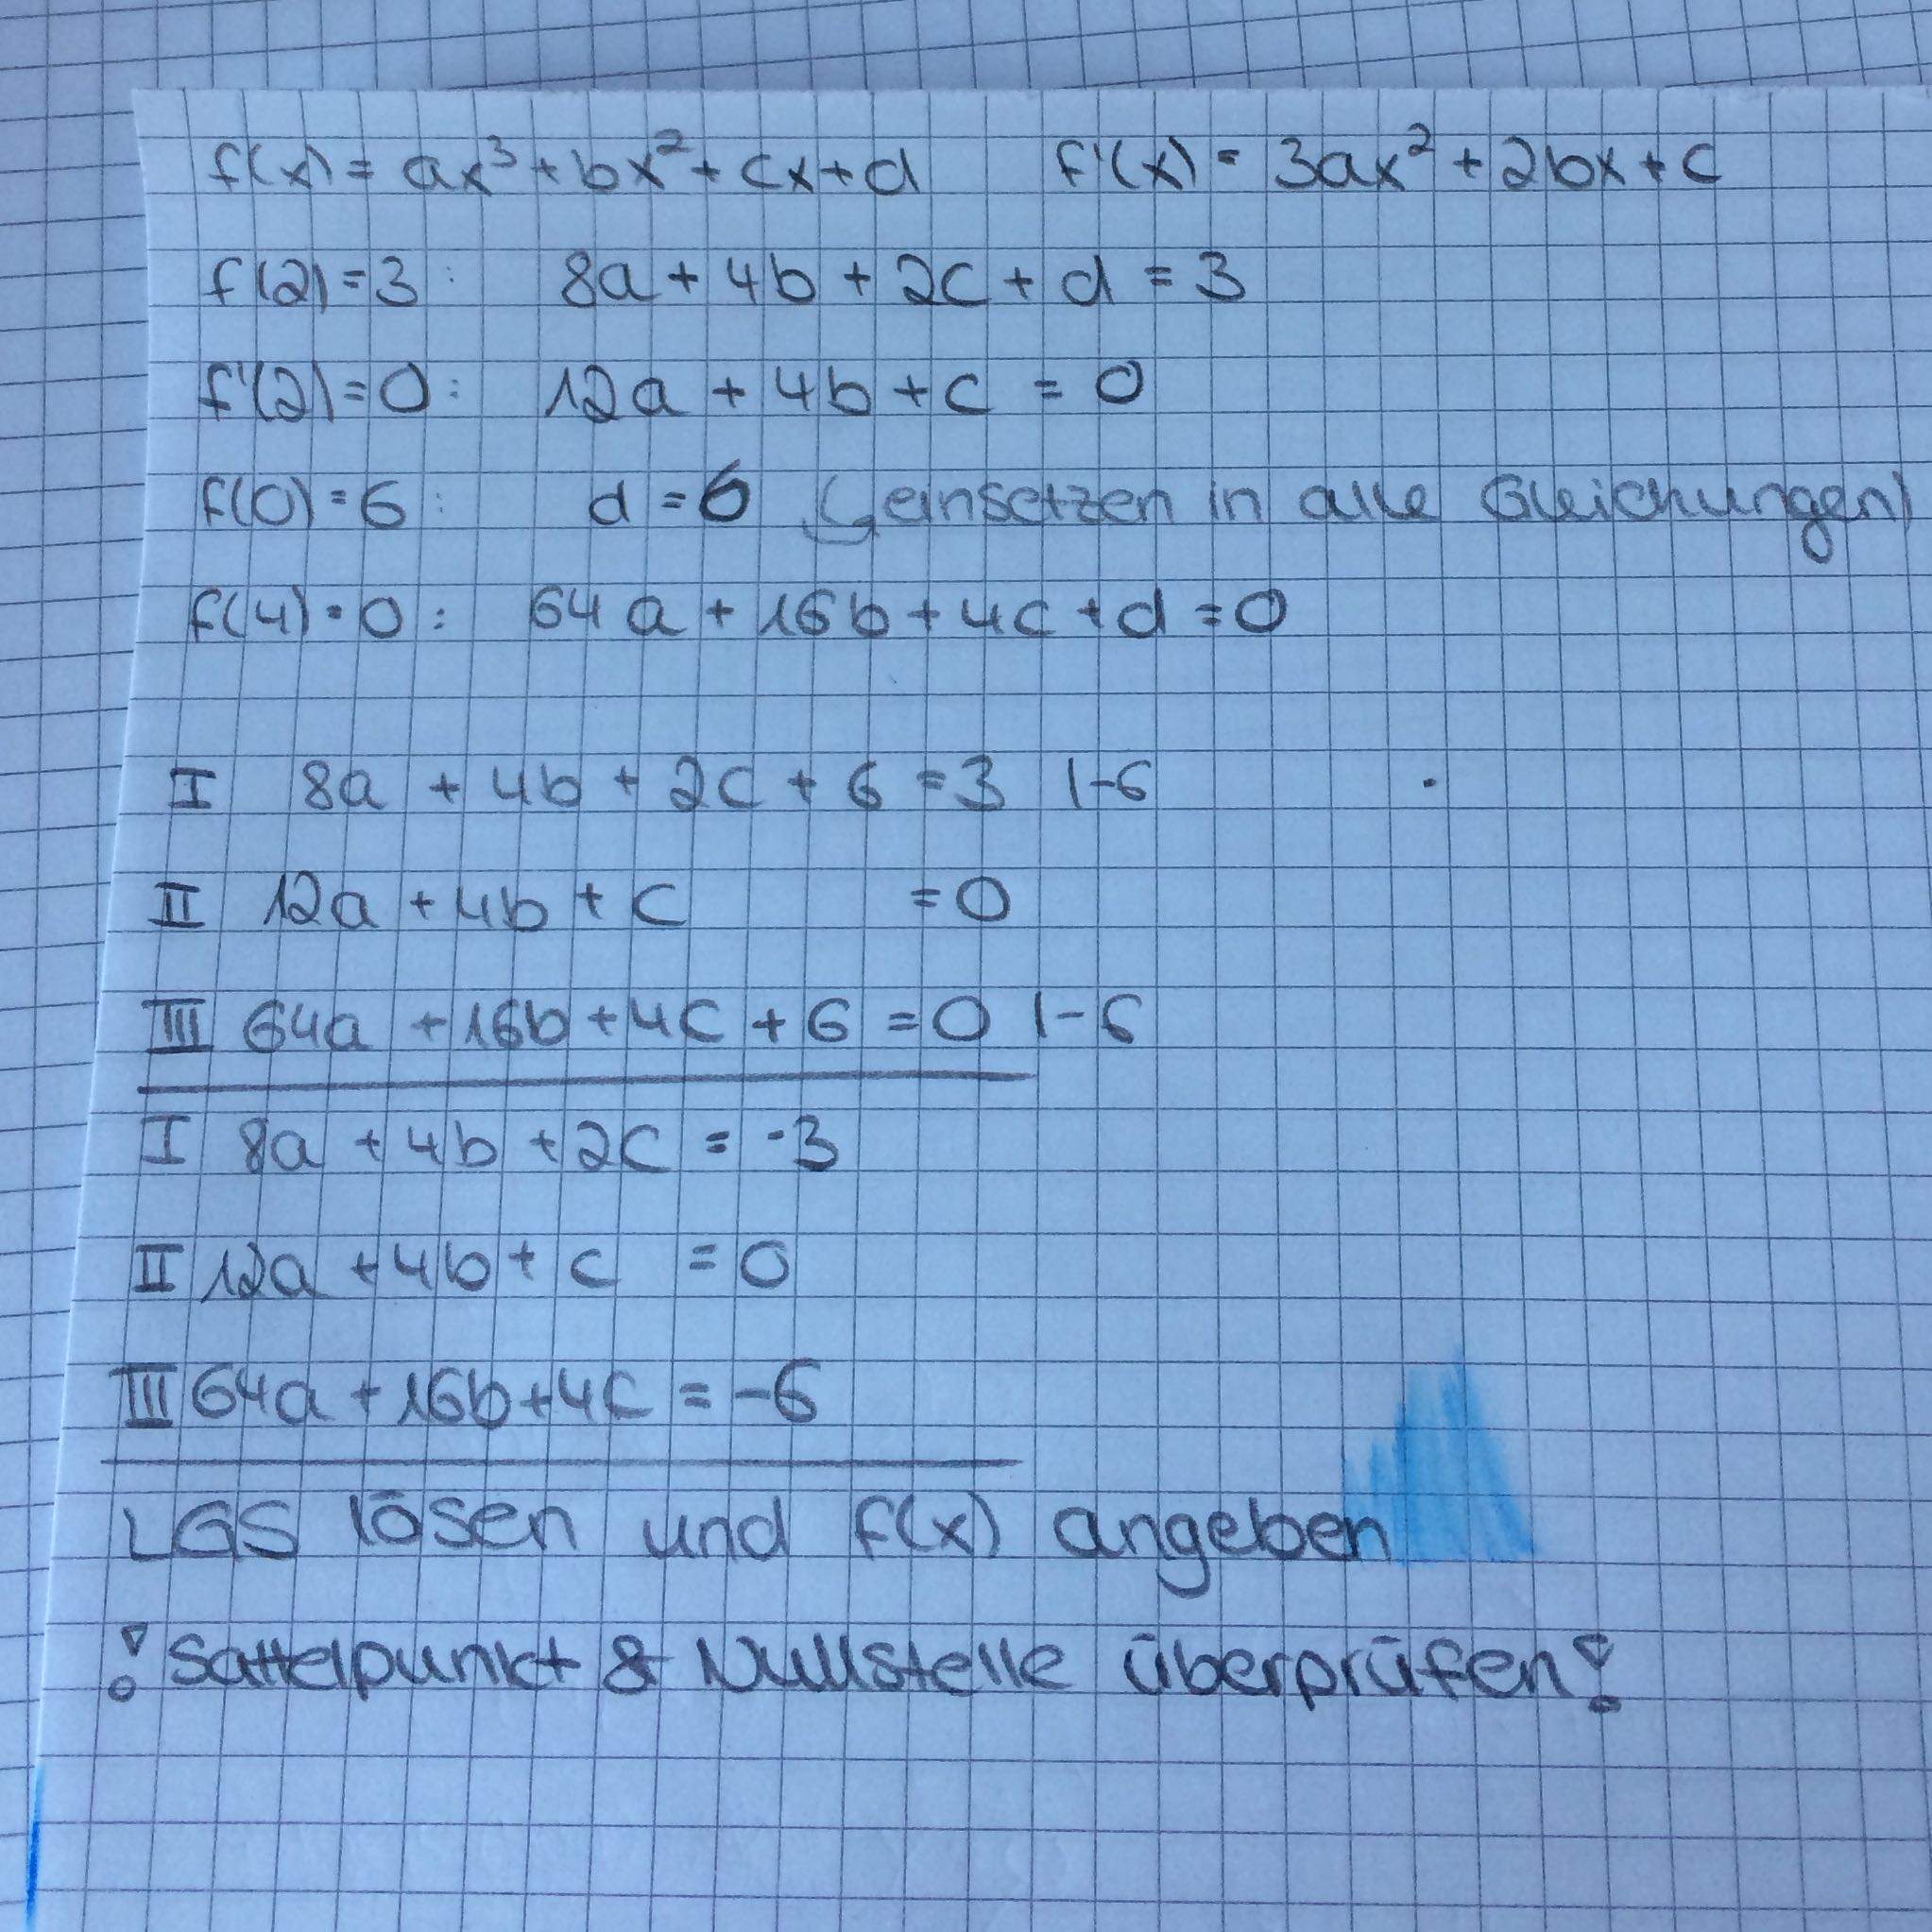 f(x) = ax³ + bx² + cx + d f'(x) = 3ax² + 2bx + c
f(2) = 3: 8a + 4b + 2c + d = 3
f'(2) = 0: 12a + 4b + c = 0
f(0) = 6: d = 6 (einsetzen in alle Gleichungen)
f(4) = 0: 64a + 16b + 4c + d = 0
I 8a + 4b + 2c + 6 = 3 |-6
II 12a + 4b + c = 0
III 64a + 16b + 4c + 6 = 0 |-6
I 8a + 4b + 2c = -3
II 12a + 4b + c = 0
III 64a + 16b + 4c = -6
LGS lösen und f(x) angeben
! Sattelpunkt & Nullstelle überprüfen!